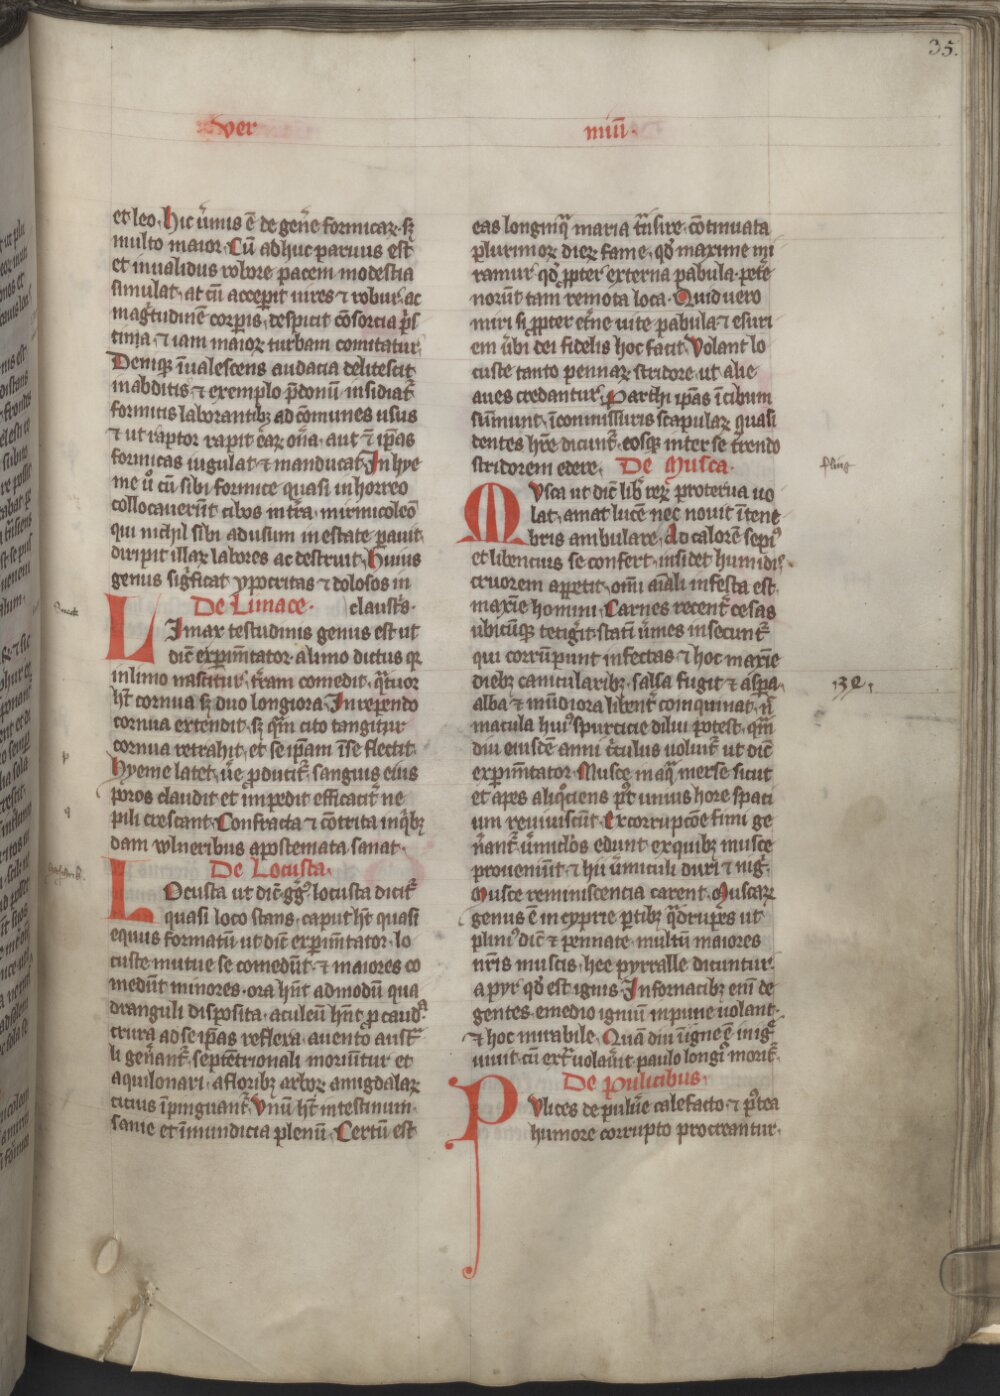 35.
ver
miui.
et leo. hic ũmis ẽ de geñe formicaꝝ. sꝫ
multo maior. Cũ adhuc paruus est
et inualidus robore pacem modestia
simulat. at cũ acceperit uires ⁊ robur. ac
magͭtudinẽ corꝑis. despicit cõsorcia pͥs
tina. ⁊ iam maioꝝ turbam comitatur
Deniqꝫ ĩualescens audacia delitescit
in abditis. ⁊ exemplo p̃donũ insidiat᷑
formicis laborantibꝫ ad cõmunes usus
⁊ ut raptor rapit eaꝝ oĩa. aut ⁊ ip̃as
formicas iugulat ⁊ manducat. In hye
me ů cũ sibi formice quasi in horreo
collocauerũt cibos in tr̃a. mirmicoleõ
qui nichil sibi ad usum in estate pauit
diripit illaꝝ labores ac destruit. Huius
genus sigͥficat ypocritas ⁊ dolosos in
De Limace. claust̾s.
LImax testudinis genus est ut
dic̃ exꝑim̃tator. a limo dictus qꝛ
in limo nascitur. tr̃am comedit. qͣtuor
hꝫ cornua sꝫ duo longiora. In rependo
cornua extendit. sꝫ qͣm cito tangitur
cornua retrahit. et se ip̃am ĩ se flectit.
hyeme latet. ůe ꝓducit᷑. sanguis eius
poros claudit et ĩpedit efficacit̾ ne
pili crescant. Confracta ⁊ cõtrita in qͥbꝫ
dam vlneribus apostemata sanat.
De Locusta.
LOcusta ut dic̃ gͣg᷒. locusta dicit᷑
quasi loco stans. caput hꝫ quasi
equus formatũ ut dic̃ exꝑim̃tator. lo
custe mutue se comedũt. ⁊ maiores co
medũt minores. ora hñt ad modũ qua
dranguli disposita. aculeũ hñt ꝓ cauda.
crura ad se ip̃as reflexa. auento aust̾
li geñant᷑. septẽtrionali moriũtur et
aquilonari. a floribꝫ arboꝝ amigdalaꝝ
citius ĩpinguant᷑. Vnũ hꝫ intestinum.
sanie et ĩmundicia plenũ. Certũ est
eas longinqͣ maria tͣnsire. cõtinuata
plurimoꝝ dieꝝ fame. qd̾ maxime mi
ramur qd̾ ꝓpter externa pabula. peteͤ
norũt tam remota loca. Quid uero
miri si ꝓpter etñe uite pabula ⁊ esuri
em ůbi dei fidelis hoc facit. Volant lo
custe tanto pennaꝝ stridore. ut alie
aues credantur. Parthi ip̃as ĩ cibum
sũmunt. ĩ cõmissuris scapulaꝝ quasi
dentes hr̃e dicunt᷑. eosqꝫ inter se terendo
stridorem edere. De Musca.
MVsca ut dic̃ lib̾ reꝝ proterua uo
lat. amat lucẽ nec nouit ĩ tene
bris ambulare. Ad calorẽ sepi᷒
et libencius se confert. insidet humidis.
cruorem appetit. om̃i aĩali infesta est.
maxĩe homini. Carnes recent̾ cesas
ubicũqꝫ tetigͥt. statĩ ůmes insecunt᷑
qui corrũpunt infectas ⁊ hoc maxĩe
diebꝫ canicularibꝫ. salsa fugit ⁊ aspa.
alba ⁊ mũdiora libent̾ coinquinat. ñ
macula hui᷒ spurcicie dilui potest. qͣm
diu eiusdẽ anni cͥculus uoluit᷑ ut dic̃
exꝑim̃tator. Musce in aqͣ merse sicut
et apes aliqͦciens pͦt unius hore spaci
um reuiuiscũt. Ex corrupcõe fimi ge
ñant᷑ ůmiclos edunt ex quibꝫ musce
proueniũt. ⁊ hii ůmiculi duri ⁊ nigͥ.
Musce reminiscencia carent. Muscaꝝ
genus ẽ in cyprie ꝑtibꝫ qͣdrupes ut
plini᷒ dic̃ ⁊ pennate. multũ maiores
nr̃is muscis. hee pyrralle dicuntur.
a pyr qd̾ est ignis. In fornacibꝫ eni de
gentes. e medio igniũ inpune uolant.
⁊ hoc mirabile. Quã diu ĩ igne ẽ in igͤ
uiuit. cũ ext̾ uolauĩt paulo longi᷒ morit᷑.
De pulicibus.
PVlices de puluͤe calefacto. ⁊ pͦtea
humore corrupto procreantur.
.32.